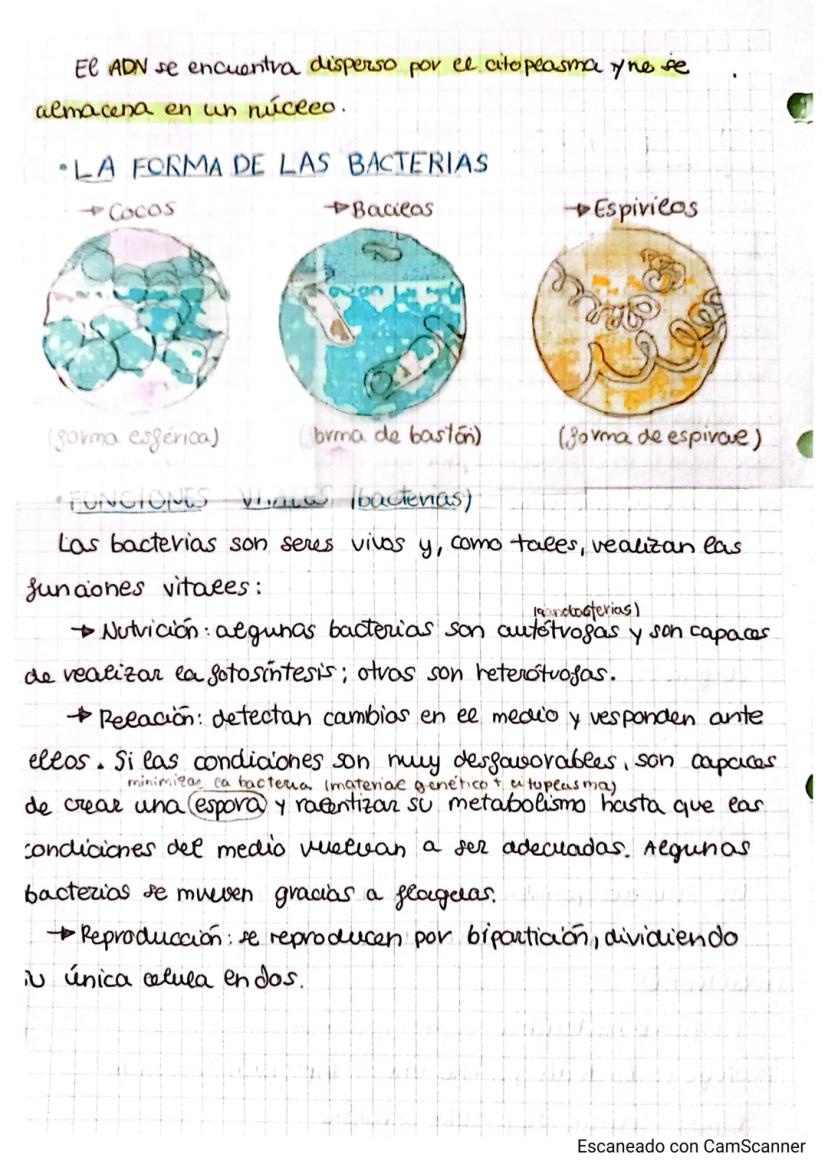 El ADN se encuentra disperso por el citoplasma y no se
almacena en un núcleo.
• LA FORMA DE LAS BACTERIAS
→ Cocos → Bacilos → Espirilos
(forma esférica) (forma de bastón) (forma de espiral)
• FUNCIONES VITALES (bacterias)
Las bacterias son seres vivos y, como tales, realizan las
funciones vitales:
(cianobacterias)
→ Nutrición: algunas bacterias son autótrofas y son capaces
de realizar la fotosíntesis; otras son heterótrofas.
→ Relación: detectan cambios en el medio y responden ante
ellos. Si las condiciones son muy desfavorables, son capaces
minimizar la bacteria (material genético + citoplasma)
de crear una espora y ralentizar su metabolismo hasta que las
condiciones del medio vuelvan a ser adecuadas. Algunas
bacterias se mueven gracias a flagelos.
→ Reproducción: se reproducen por bipartición, dividiendo
su única celula en dos.
Escaneado con CamScanner